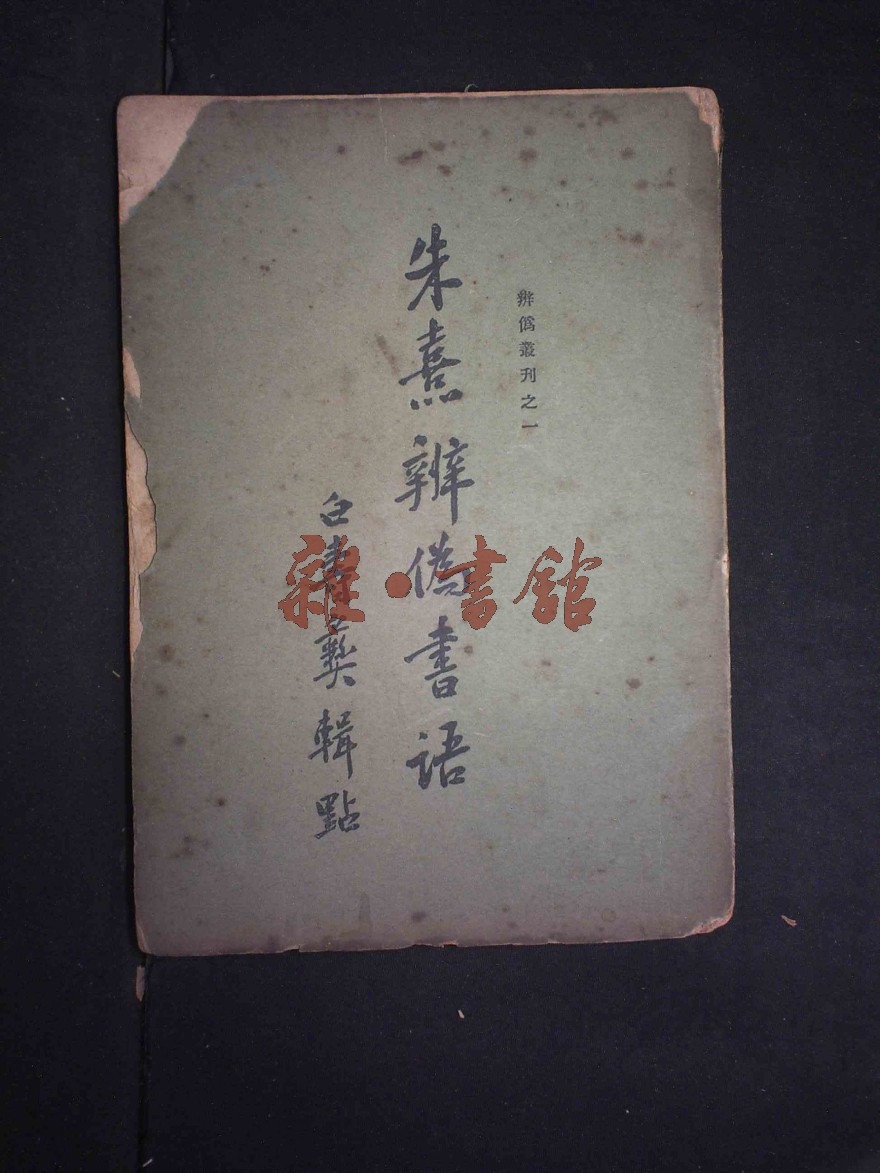 辨僞叢刊之一
朱熹辨偽書語
白壽彝輯點
雜·書館